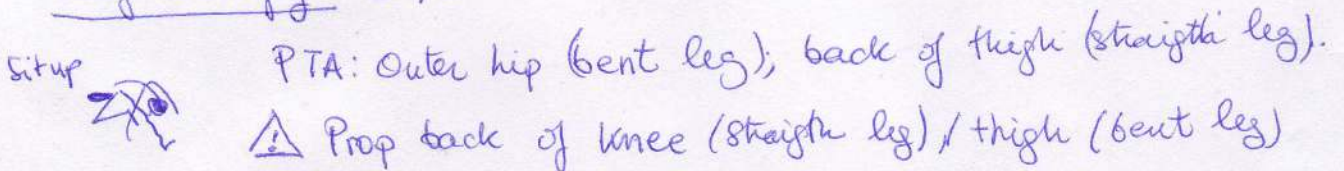 Situp
PTA: Outer hip (bent leg); back of thigh (straigth leg).
⚠ Prop back of knee (straigth leg) / thigh (bent leg)